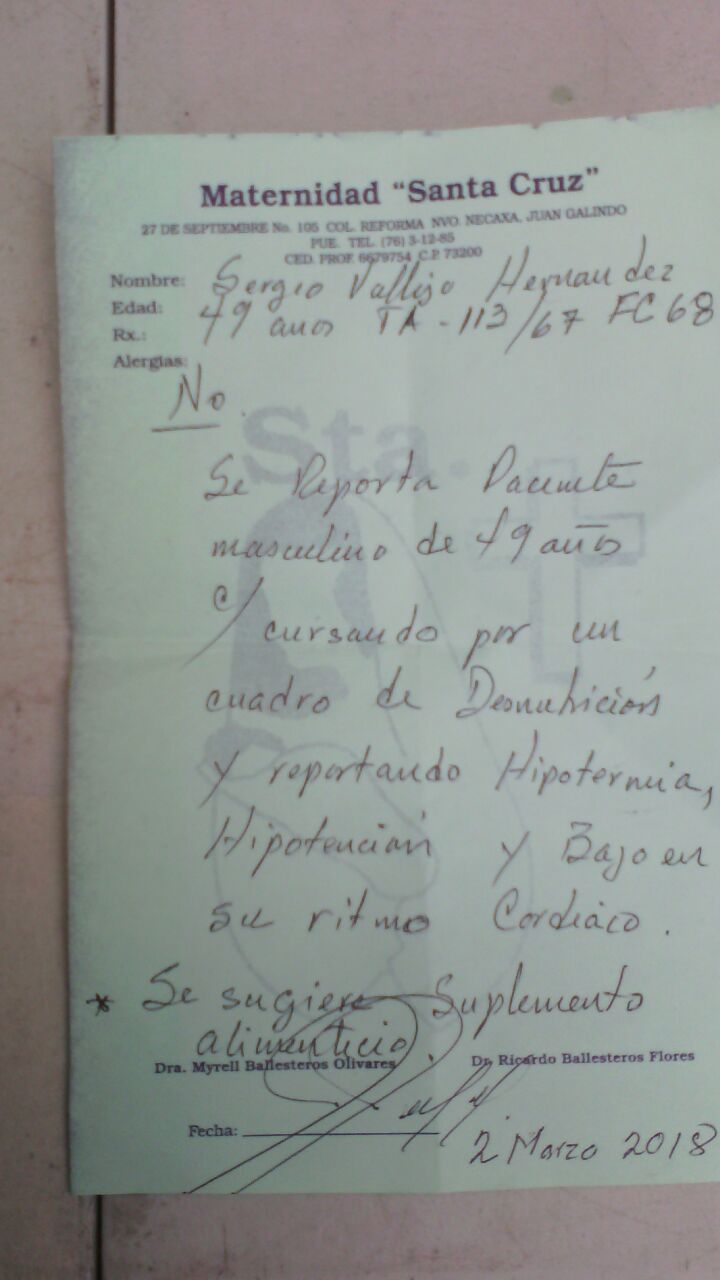 Maternidad "Santa Cruz"
27 DE SEPTIEMBRE No. 105 COL. REFORMA NVO. NECAXA, JUAN GALINDO
PUE. TEL. (76) 3-12-85
CED. PROF. 6679754 C.P. 73200
Nombre: Sergio Vallejo Hernandez
Edad: 49 años TA - 113/67 FC 68
Rx.:
Alergias:
No.
Sta.
Se Reporta Paciente
masculino de 49 años
c/ cursando por un
cuadro de Desnutrición
y reportando Hipotermia,
Hipotención y Bajo en
su ritmo Cordiaco.
* Se sugiere Suplemento
alimenticio.
Dra. Myrell Ballesteros Olivares Dr. Ricardo Ballesteros Flores
Fecha: 2 Marzo 2018